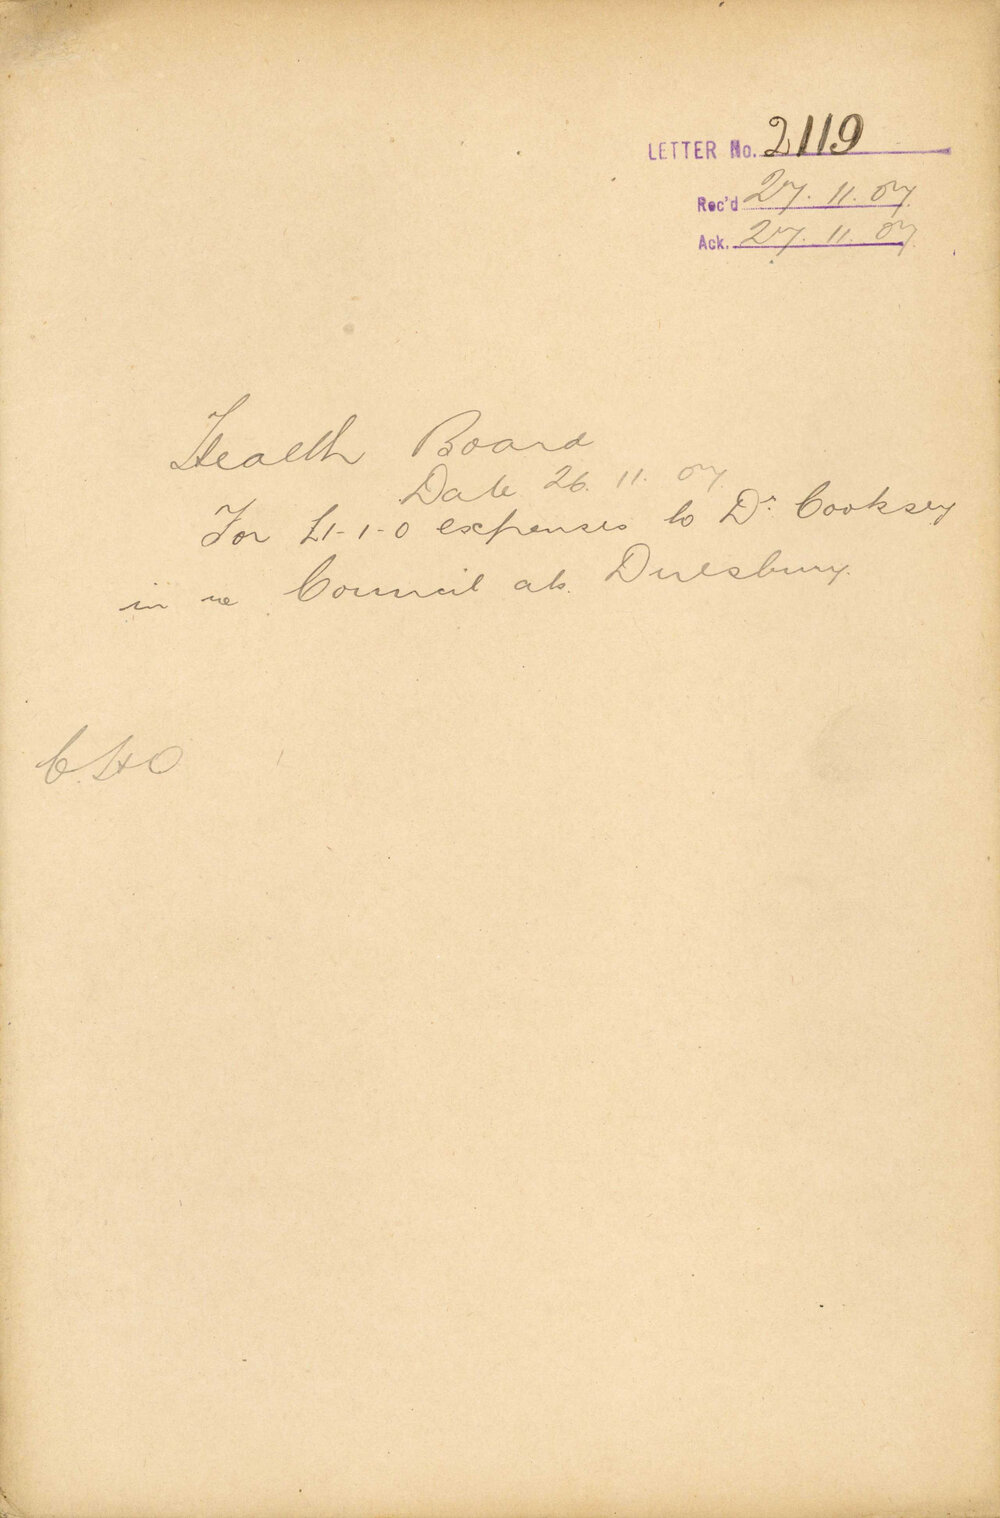 LETTER No. 2119
Rec'd 27. 11. 07.
Ack. 27. 11 07.
Health Board
Date 26. 11. 07.
For £1-1-0 expenses to Dr. Cooksey
in re Council ats. Dulsbury.
C.HO